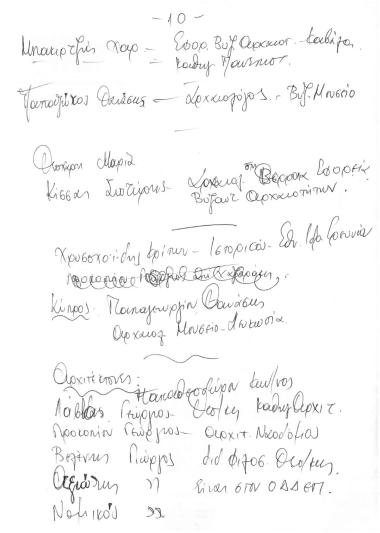 - 10 -
Μπακιρτζής Χαρ - Εφορ. Βυζ Αρχαιοτ. - Καβάλα
Καθηγ Πανεπιστ.
Παπαζώτος Θανάσης - Αρχαιολόγος - Βυζ. Μουσείο
Μαρία
Κίσσας Σωτήρης Αρχαιολ στη Βέρροια Εφορεία
Βυζαντ Αρχαιοτήτων.
Χρυσοχοΐδης Κρίτων - Ιστορικός - Εθν. Ιδρ Ερευνών
Κύπρος: Παπαγεωργίου Θανάσης
Αρχαιολ Μουσείο - Λευκωσία
Αρχιτέκτονες:
Παπαθεοδώρου Κων/νος
Γεώργιος - Θεσ/κη Καθηγ Αρχιτ.
Προκοπίου Γεώργιος - Αρχιτ. Ναοδομίας
Βελένης Γιώργος διδ Φιλοσ. Θεσ/κης.
" είναι στον ΟΔΔΕΠ.
Νομικού "